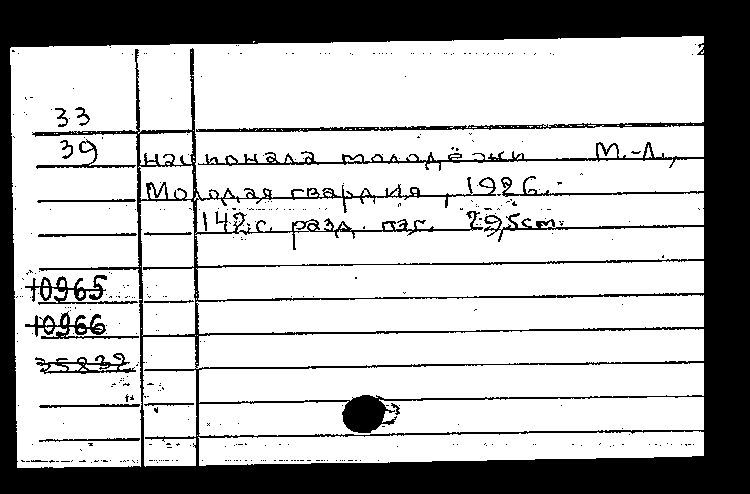 2
33
39 национала молодёжи М.-Л.,
Молодая гвардия, 1926.-
142 с. разд. паг. 29,5cm.
10965
10966
35832